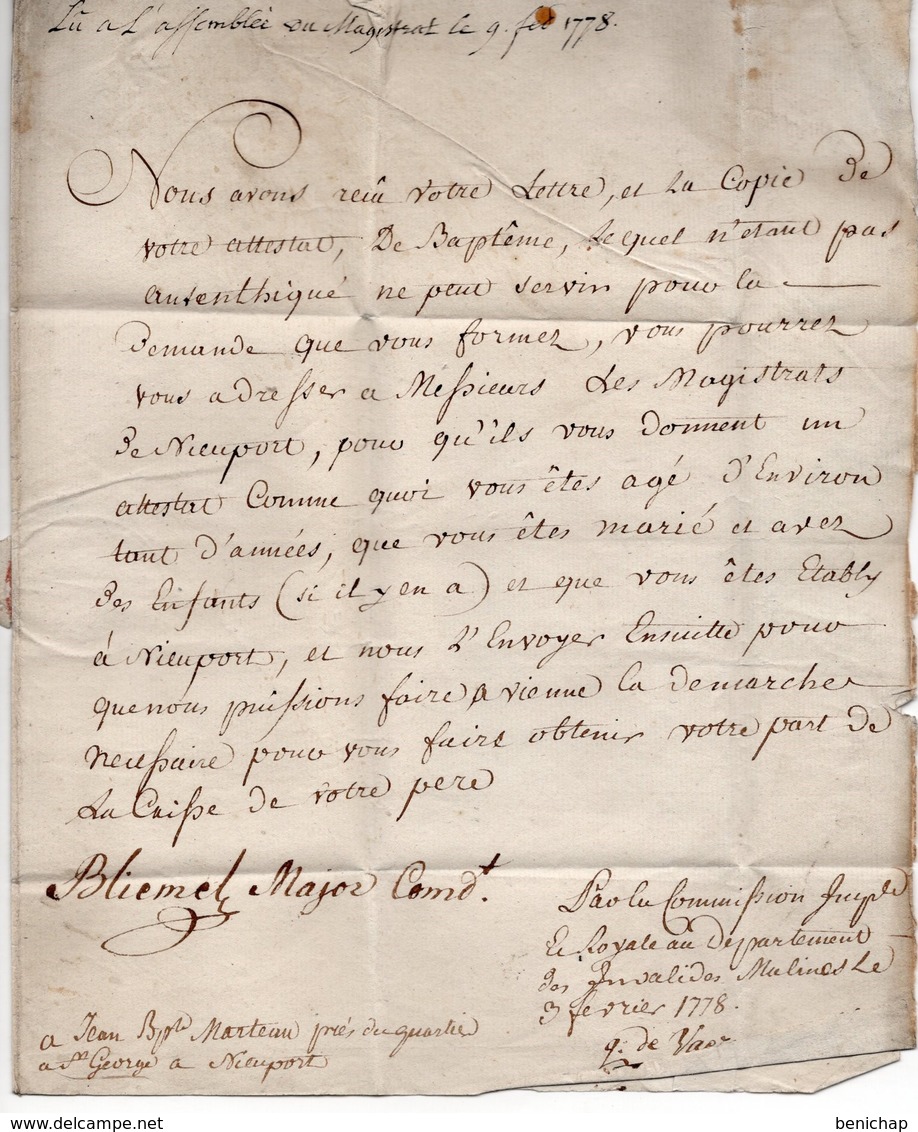 Lu a L'assemblée du Magistrat le 9. feb 1778.
Nous avons reçû votre Lettre, et La Copie de
votre attestat, De Baptême, Lequel n'etant pas
autenthiqué ne peut servir pour la
Demande que vous formez, vous pourrez
vous adresser a Messieurs Les Magistrats
de Nieuport, pour qu'ils vous donnent un
attestat Comme quoi vous êtes agé d'Environ
tant d'années, que vous êtes marié et avez
des Enfants (si il y en a) et que vous êtes Etably
à Nieuport, et nous L'Envoyer Ensuitte pour
que nous puissions faire a vienne la demarche
necessaire pour vous faire obtenir votre part de
La Caisse de votre pere
Bliemel Major Comdt.
Par La Commission Imple
Et Royale au Departement
des Invalides Malines Le
3 fevrier 1778.
a Jean Bpte Marteau près du quartier
a St George a Nieuport
de
benichap